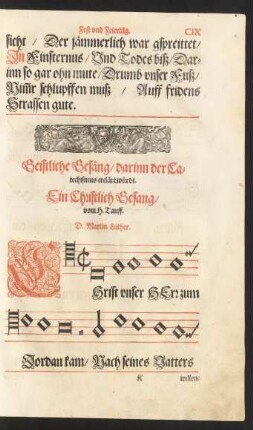 Fest vnd Feiertäg. CIX
sicht / Der jämmerlich war gspreittet /
In Finsternus / Vnd Todes biß / Dar-
inn so gar ohn mute / Drumb vnser Fuß /
schlupffen muß / Auff fridens
Strassen gute.
Geistliche Gesäng / darinn der Ca-
techismus erklärt würdt.
Ein Christlich Gesang /
vom H. Tauff.
D. Martin. Luther.
Christ vnser HErr zum
Jordan kam / Nach seines Vatters
K willen /